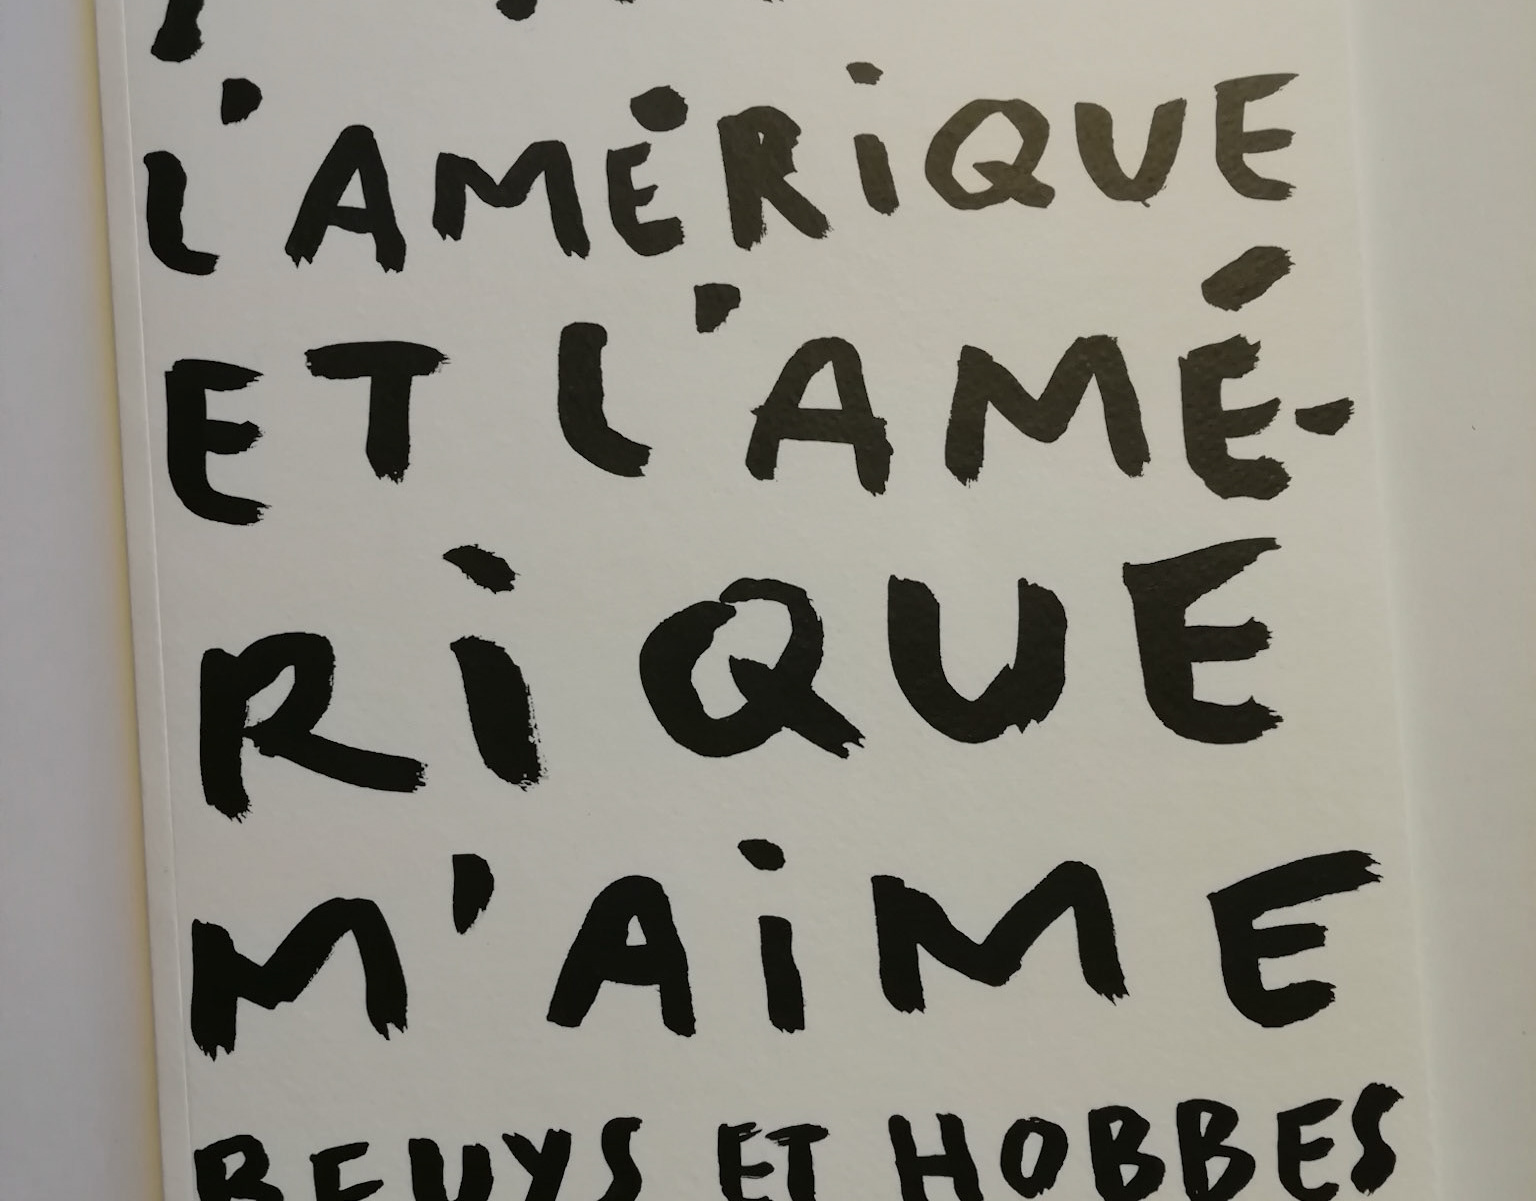 L'AMÉRiQUE
ET L'AMÉ-
RiQUE
M'AiME
BEUYS ET HOBBES